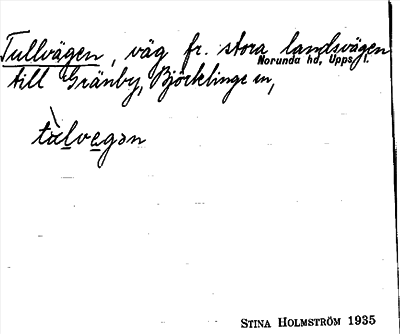 Tullvägen, väg fr. stora landsvägen
Norunda hd, Upps. l.
till Gränby, Björklinge sn,
tàlvegən
STINA HOLMSTRÖM 1935